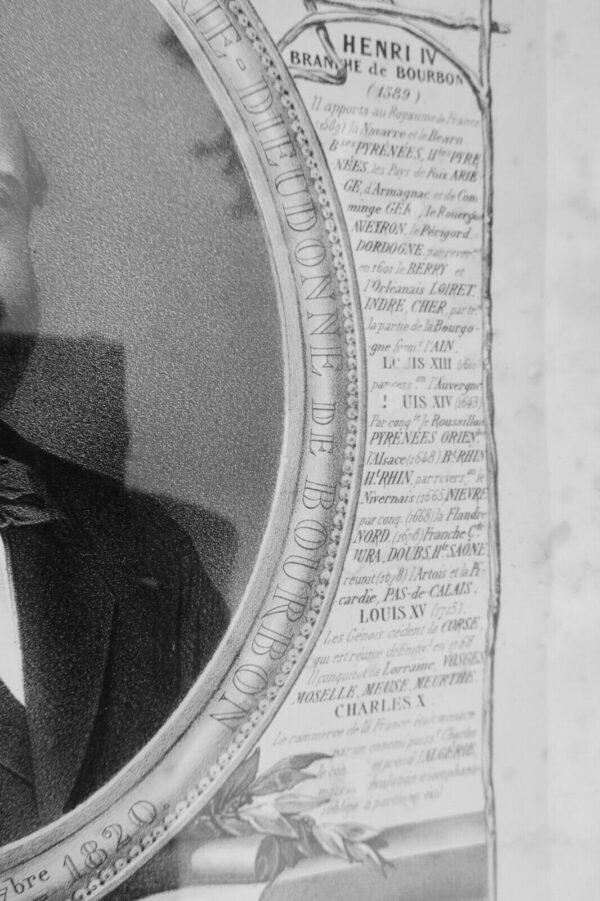 RIE-DIEUDONNÉ DE BOURBON
bre 1820.
HENRI IV
BRANCHE de BOURBON
(1589).
Il apporta au Royaume de France
(1589) la Navarre et le Bearn
Bses PYRÉNÉES, Htes PYRÉ
NÉES, les Pays de Foix ARIE
GE, d'Armagnac et de Com
minge GER, le Rouergue
AVEYRON, le Périgord
DORDOGNE, par rever.on
en 1601 le BERRY et
l'Orleanais LOIRET,
INDRE, CHER, par tr.té
la partie de la Bourgo-
gne form.t l'AIN.
LOUIS XIII (1610)
par cess.on l'Auvergne
UIS XIV (1643)
Par conq.te le Roussillon
PYRÉNÉES ORIEN.
l'Alsace (1648) B.t RHIN
H.t RHIN, par revers.on le
Nivernais (1665) NIEVRE
par conq. (1668) la Flandre
NORD. (1678) Franche C.té
JURA, DOUBS, H.te SAÔNE
réunit (1678) l'Artois et la Pi-
cardie, PAS-de-CALAIS.
LOUIS XV (1715).
Les Génois cèdent la CORSE,
qui est réunie définitiv.t en 1768
Il conquit la Lorraine, VOSGES
MOSELLE, MEUSE, MEURTHE.
CHARLES X.
Le commerce de la France était menacé
par un ennemi puiss.t Charles
le con et prend l'ALGÉRIE,
mais révolution triomphante
l'oblige à partir en exil